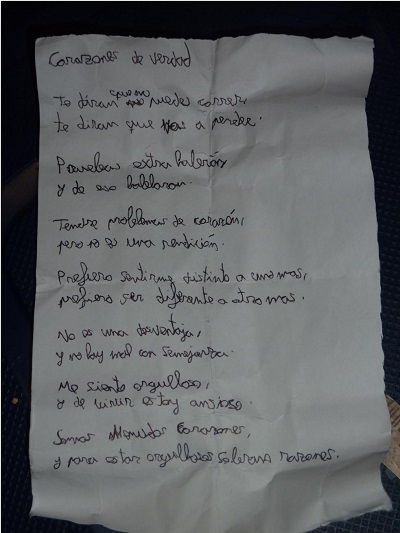 Corazones de verdad
Te diran que no puedes correr,
te diran que vas a perder.
Pruebas extra haleran
y de eso hablaran.
Tendre problemas de corazón,
pero no es una rendición.
Prefiero sentirme distinto a uno mas,
prefiero ser diferente a otro mas.
No es una desventaja,
y no hay mal con semejanza.
Me siento orgulloso,
y de vivir estoy ansioso.
Somos Corazones,
y para estar orgullosos saleran razones.